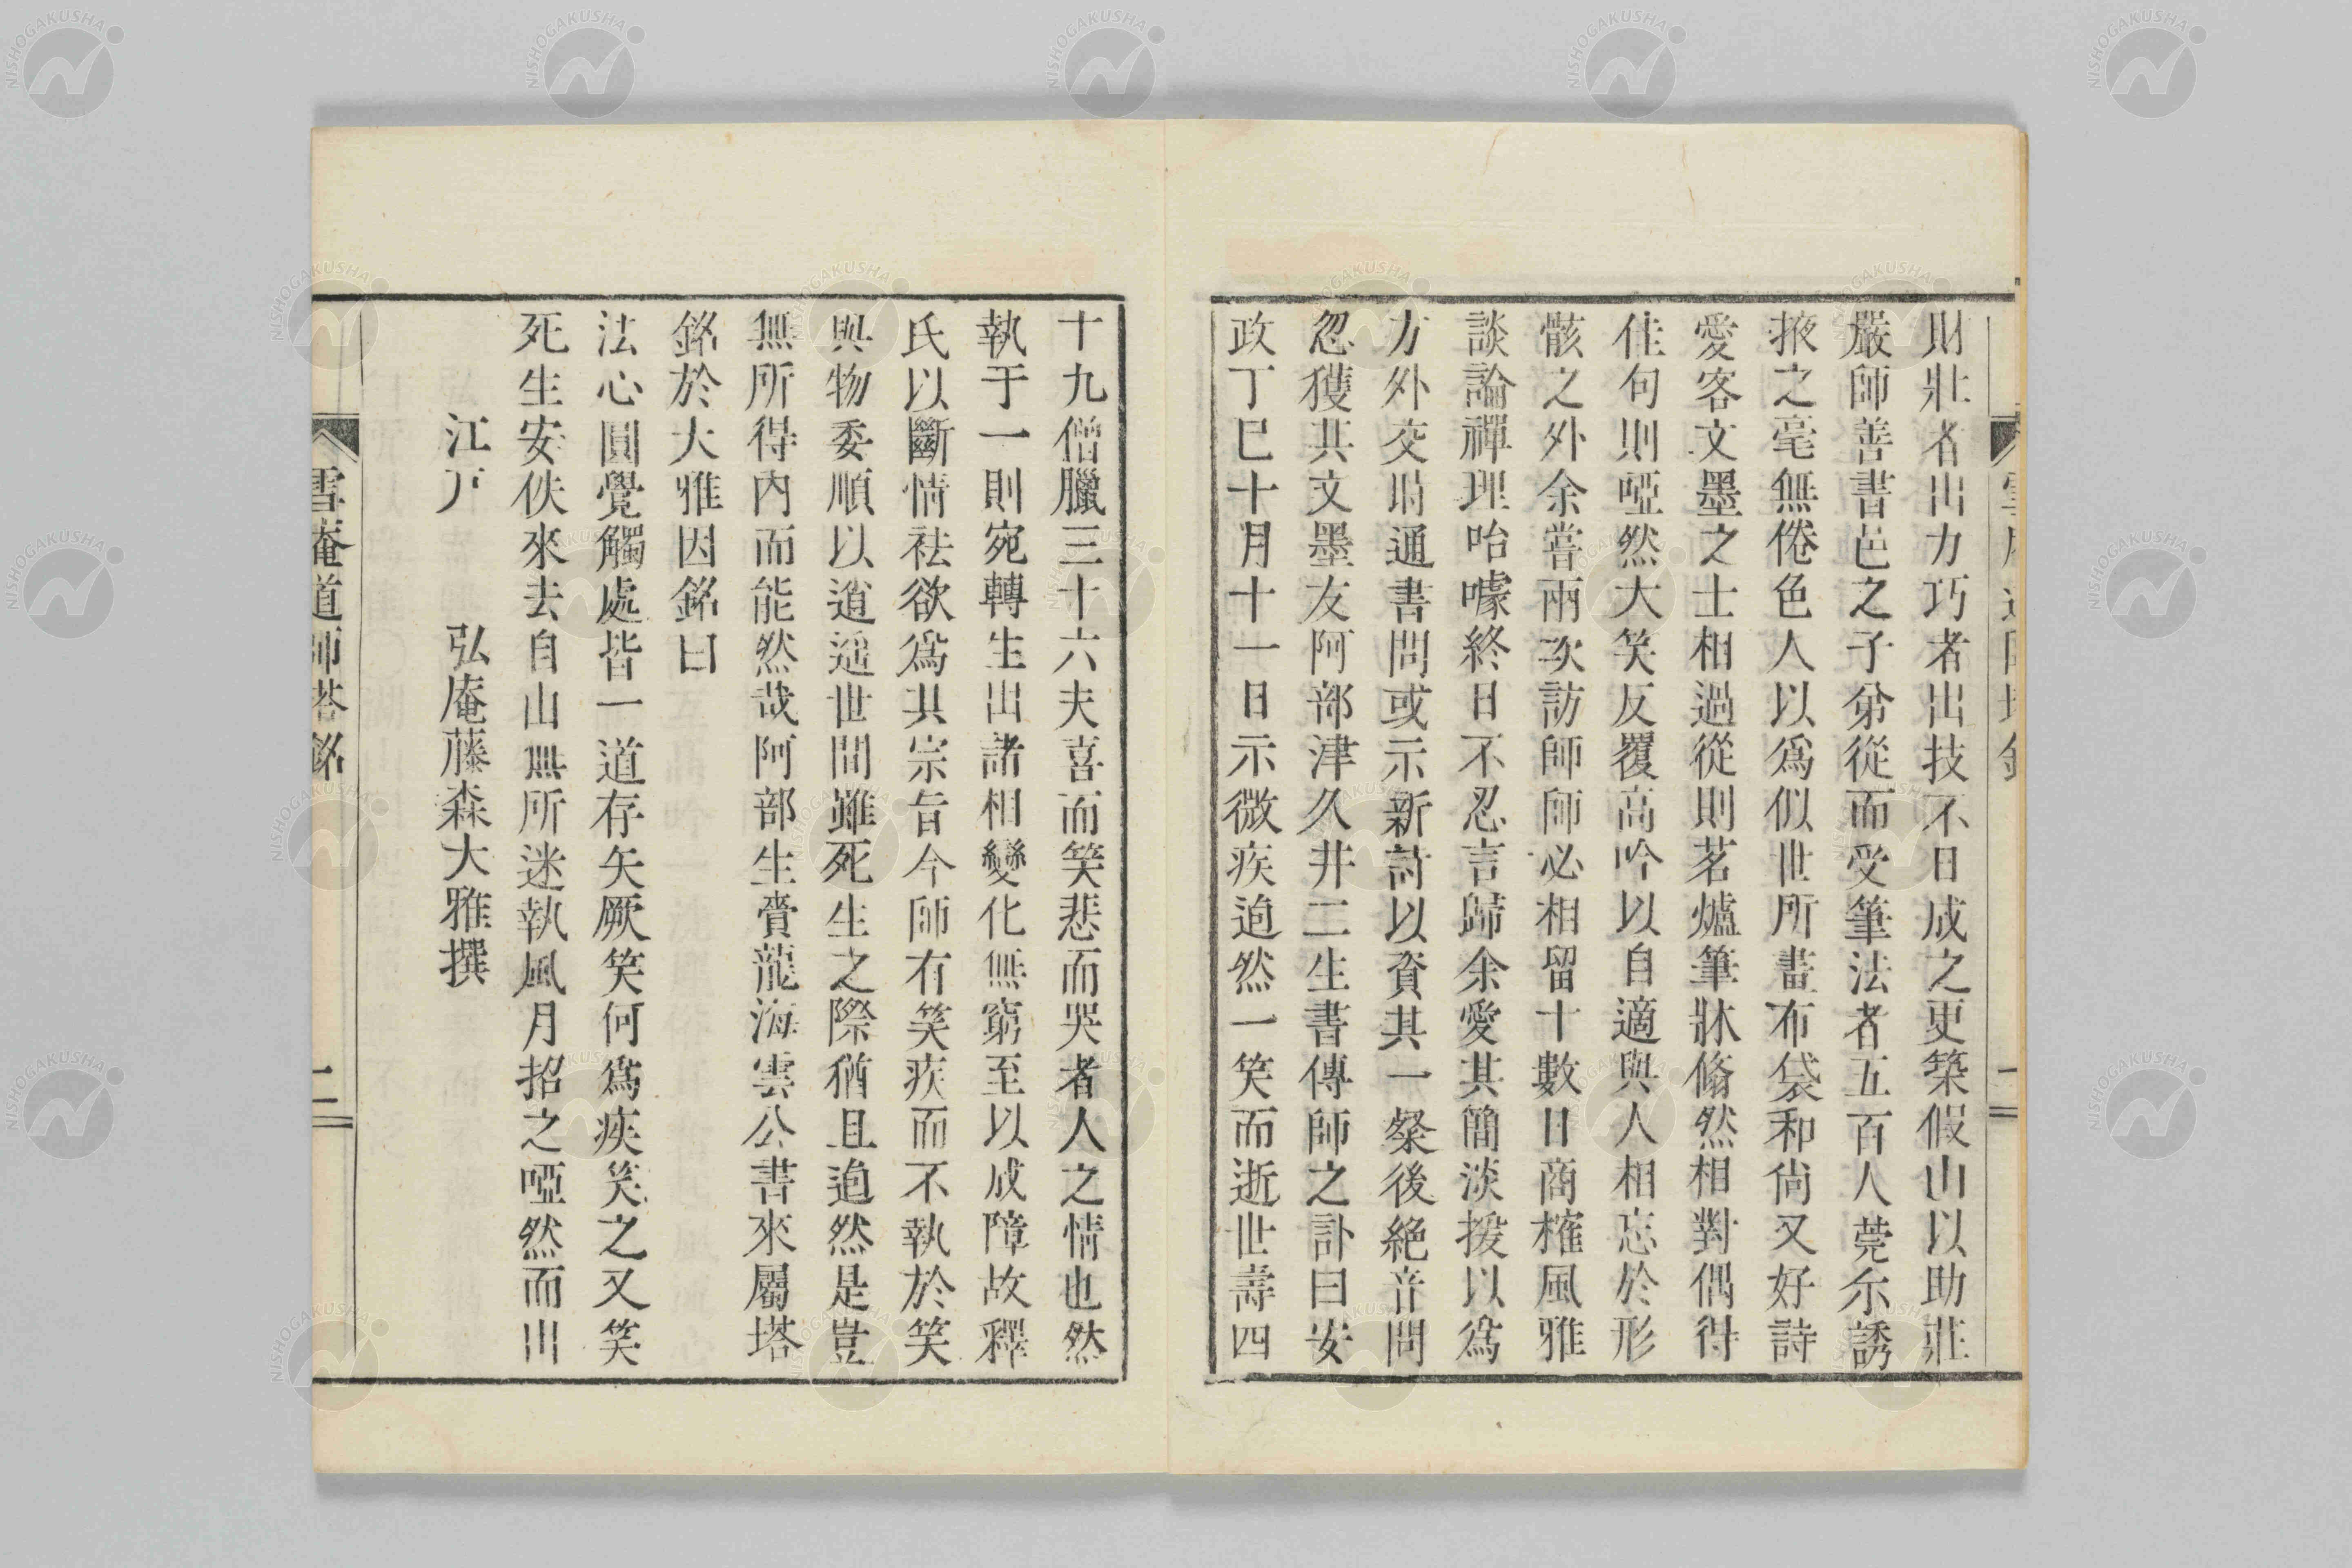 財壯者出力巧者出技不日成之更築假山以助莊
嚴師善書邑之子弟從而受筆法者五百人莞尒誘
掖之毫無倦色人以爲似世所畫布袋和尙又好詩
愛客文墨之士相過從則茗爐筆牀翛然相對偶得
佳句則啞然大笑反覆高吟以自適與人相忘於形
骸之外余嘗兩次訪師師必相留十數日商榷風雅
談論禪理咍噱終日不忍言歸余愛其簡淡援以爲
方外交時通書問或示新詩以資其一粲後絶音問
忽獲其文墨友阿部津久井二生書傳師之訃曰安
政丁巳十月十一日示微疾逌然一笑而逝世壽四
十九僧臘三十六夫喜而笑悲而哭者人之情也然
執于一則宛轉生出諸相變化無窮至以成障故釋
氏以斷情祛欲爲其宗旨今師有笑疾而不執於笑
與物委順以逍遥世間雖死生之際猶且逌然是豈
無所得內而能然哉阿部生賫龍海雲公書來屬塔
銘於大雅因銘曰
法心圓覺觸處皆一道存矢厥笑何爲疾笑之又笑
死生安佚來去自由無所迷執風月招之啞然而出
江戸　弘庵藤森大雅撰
雪庵道師塔銘
二